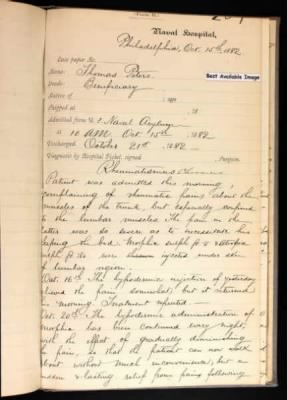 Naval Hospital,
Philadelphia, Oct. 15th, 1882
Case paper No.
Best Available Image
Name: Thomas Peters.
Grade: Beneficiary
Native of
Shipped at
Admitted from U.S. Naval Asylum
at 10 A.M. Oct 15th, 1882
Discharged October 21st, 1882
Diagnosis by Hospital Ticket, signed Surgeon.
Rheumatismus
Patient was admitted this morning,
complaining of rheumatic pains about the
muscles of the trunk, but especially confined
to the lumbar muscles. The pain in the
latter was so severe as to necessitate his
keeping the bed. Morphia sulph & Atropia
sulph were injected under skin
of lumbar region.
Oct. 16th The hypodermic injection of yesterday
relieved the pain somewhat, but it returned
this morning. Treatment repeated
Oct. 20th The hypodermic administration of
Morphia has been continued every night,
with the effect of gradually diminishing
the pain, so that the patient can now walk
about without much inconvenience; but a
sudden & lasting relief from pains following